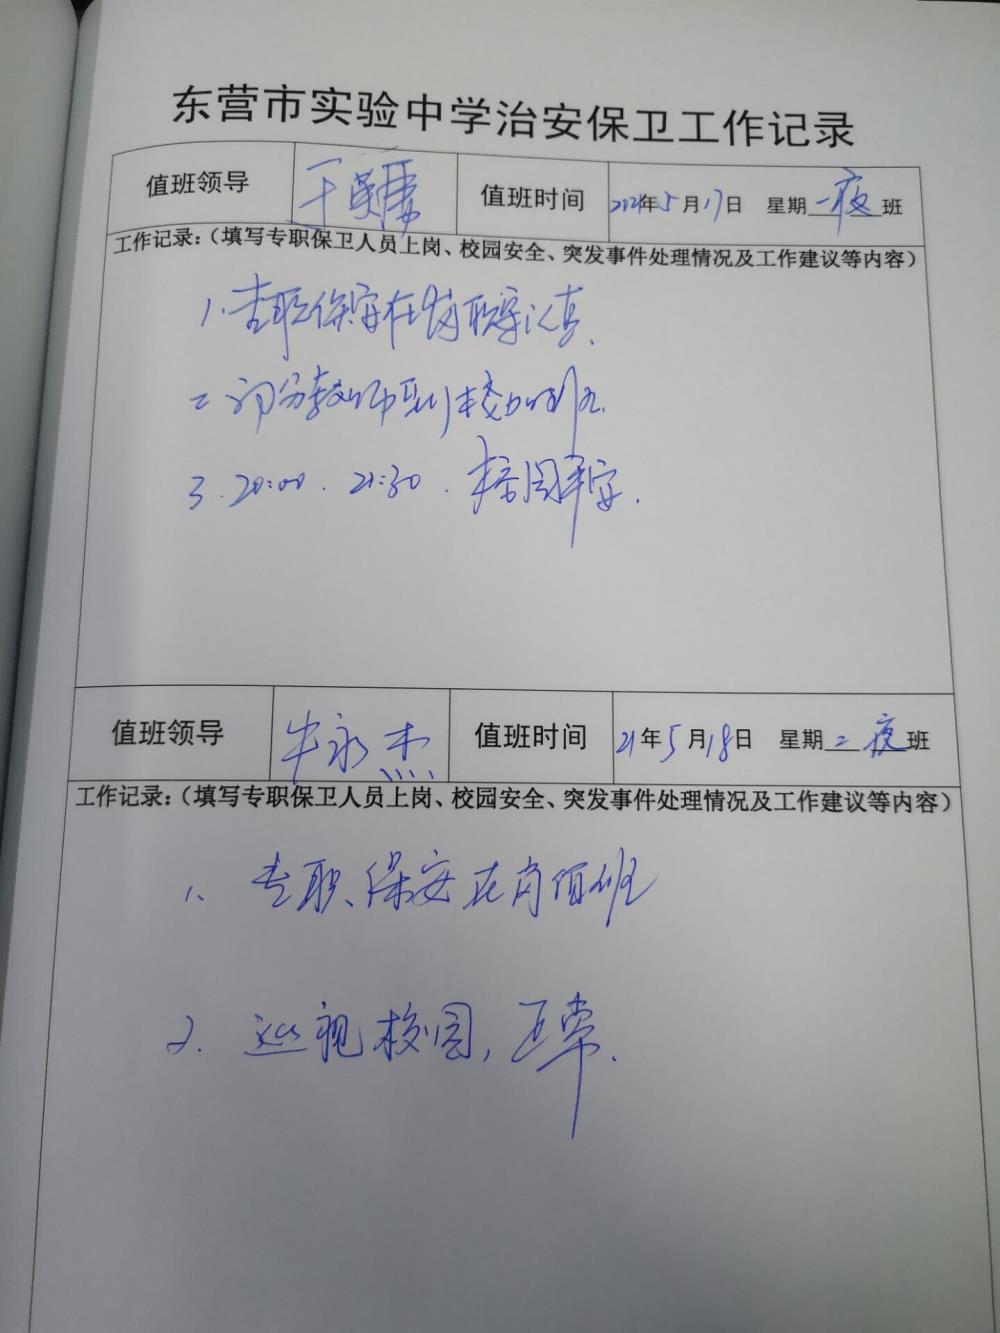 东营市实验中学治安保卫工作记录
值班领导 值班时间 2021年5月17日 星期一夜班
工作记录：（填写专职保卫人员上岗、校园安全、突发事件处理情况及工作建议等内容）
1、专职保安在岗职守认真、
2 部分教师到校加班
3.20:00.21:30.校园平安.
值班领导 牛永杰 值班时间 21年5月18日 星期二夜班
工作记录：（填写专职保卫人员上岗、校园安全、突发事件处理情况及工作建议等内容）
1、专职、保安在岗值班
2. 巡视校园，正常.